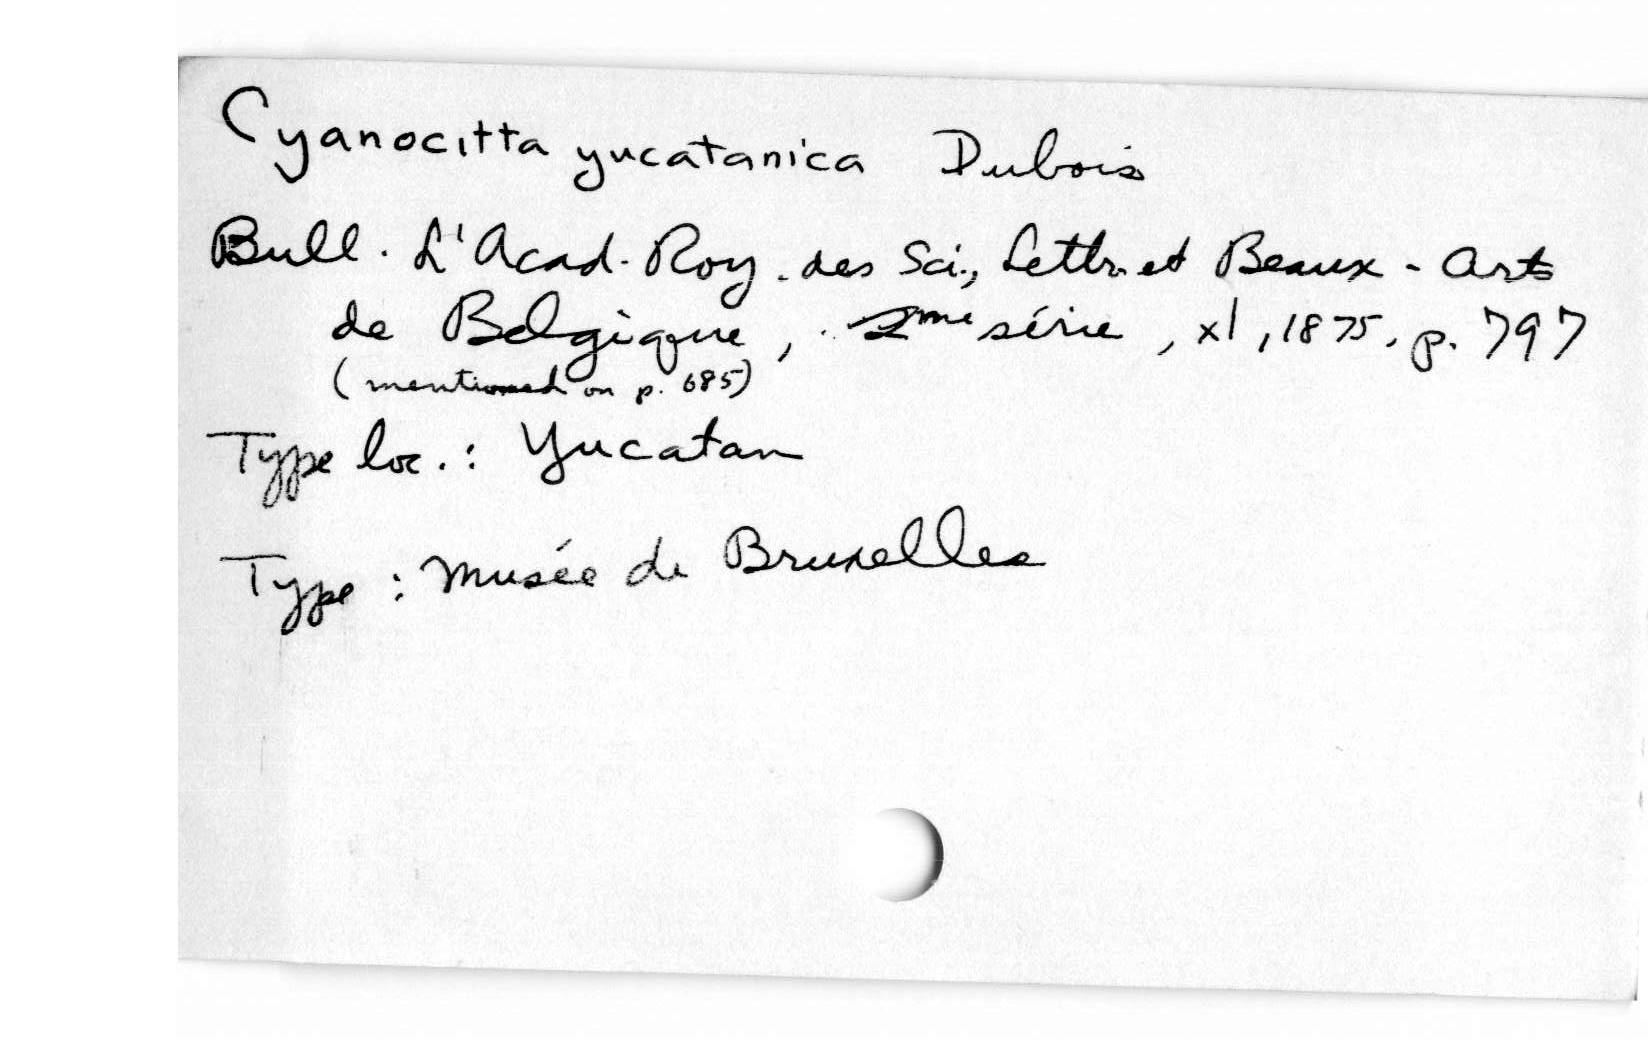 Cyanocitta yucatanica Dubois
Bull. L'Acad. Roy. des Sci., Lettr. et Beaux-Arts
de Belgique, 2me série, xl, 1875, p. 797
(mentioned on p. 685)
Type loc.: Yucatan
Type: Musée de Bruxelles